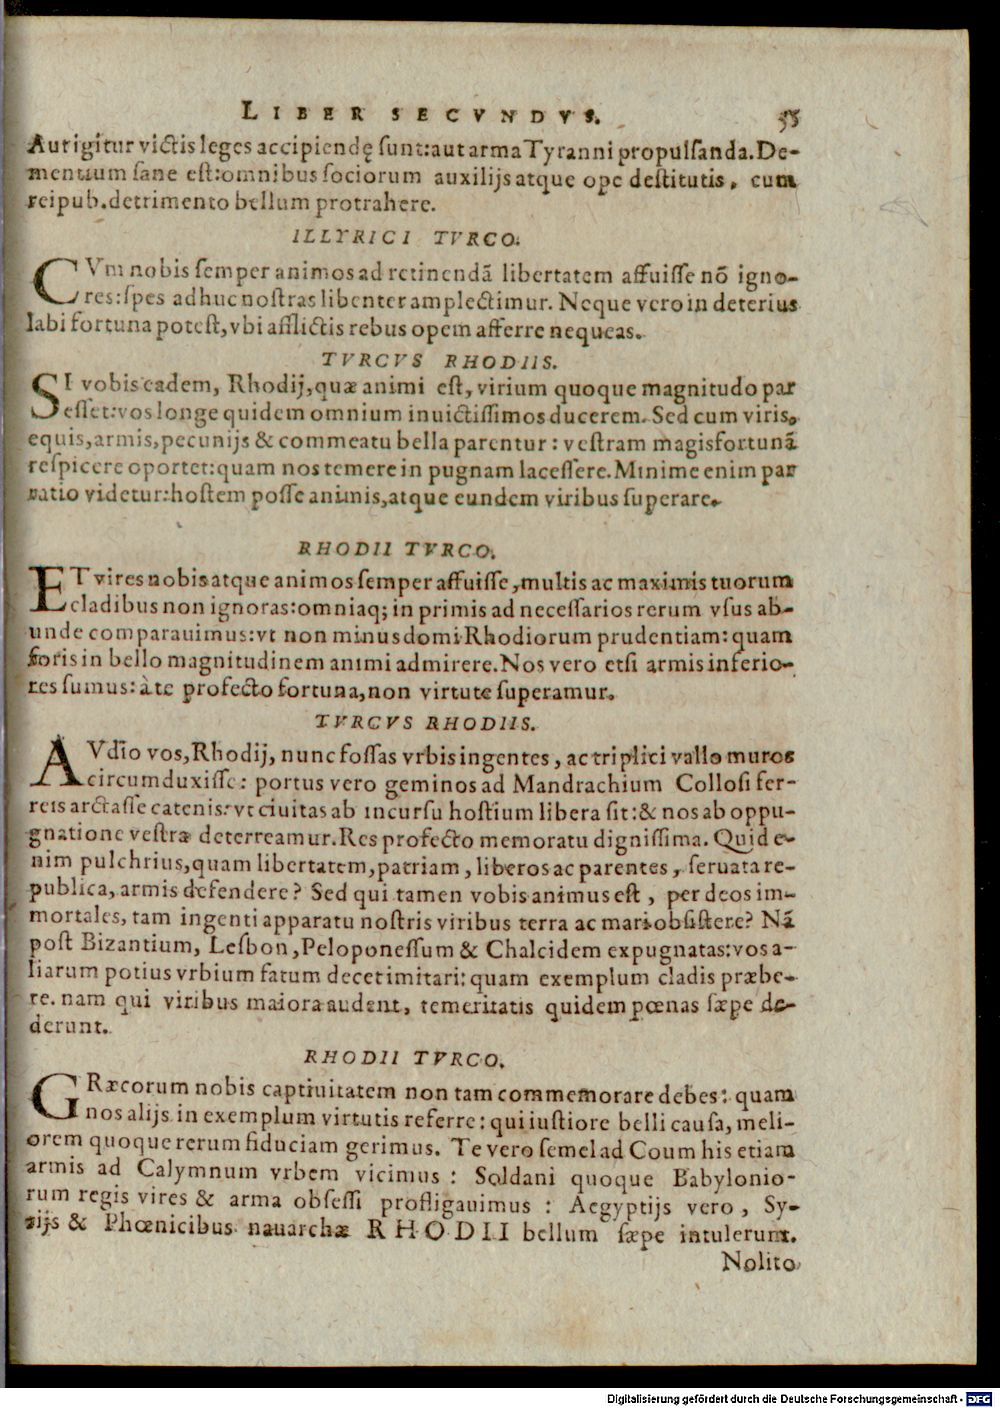 LIBER SECVNDVS. 55
Aut igitur victis leges accipiendę sunt: aut arma Tyranni propulsanda. De-
mentium sane est: omnibus sociorum auxilijs atque ope destitutis, cum
reipub. detrimento bellum protrahere.
ILLYRICI TVRCO.
CVm nobis semper animos ad retinendā libertatem affuisse nō igno-
res: spes adhuc nostras libenter amplectimur. Neque vero in deterius
labi fortuna potest, vbi afflictis rebus opem afferre nequeas.
TVRCVS RHODIIS.
SI vobis eadem, Rhodij, quæ animi est, virium quoque magnitudo par
esset: vos longe quidem omnium inuictissimos ducerem. Sed cum viris,
equis, armis, pecunijs & commeatu bella parentur: vestram magis fortunā
respicere oportet: quam nos temere in pugnam lacessere. Minime enim par
ratio videtur: hostem posse animis, atque eundem viribus superare.
RHODII TVRCO.
ET vires nobis atque animos semper affuisse, multis ac maximis tuorum
cladibus non ignoras: omniaq; in primis ad necessarios rerum vsus ab-
unde comparauimus: vt non minus domi Rhodiorum prudentiam: quam
foris in bello magnitudinem animi admirere. Nos vero etsi armis inferio-
res sumus: à te profecto fortuna, non virtute superamur.
TVRCVS RHODIIS.
AVdio vos, Rhodij, nunc fossas vrbis ingentes, ac triplici vallo muros
circumduxisse: portus vero geminos ad Mandrachium Collosi fer-
reis arctasse catenis: vt ciuitas ab incursu hostium libera sit: & nos ab oppu-
gnatione vestra deterreamur. Res profecto memoratu dignissima. Quid e-
nim pulchrius, quam libertatem, patriam, liberos ac parentes, seruata re-
publica, armis defendere? Sed qui tamen vobis animus est, per deos im-
mortales, tam ingenti apparatu nostris viribus terra ac mari obsistere? Nā
post Bizantium, Lesbon, Peloponessum & Chalcidem expugnatas: vos a-
liarum potius vrbium fatum decet imitari: quam exemplum cladis præbe-
re. nam qui viribus maiora audent, temeritatis quidem pœnas sæpe de-
derunt.
RHODII TVRCO.
GRæcorum nobis captiuitatem non tam commemorare debes: quam
nos alijs in exemplum virtutis referre: qui iustiore belli causa, meli-
orem quoque rerum fiduciam gerimus. Te vero semel ad Coum his etiam
armis ad Calymnum vrbem vicimus: Soldani quoque Babylonio-
rum regis vires & arma obsessi profligauimus: Aegyptijs vero, Sy-
rijs & Phœnicibus nauarchæ RHODII bellum sæpe intulerunt.
Nolito
Digitalisierung gefördert durch die Deutsche Forschungsgemeinschaft - DFG